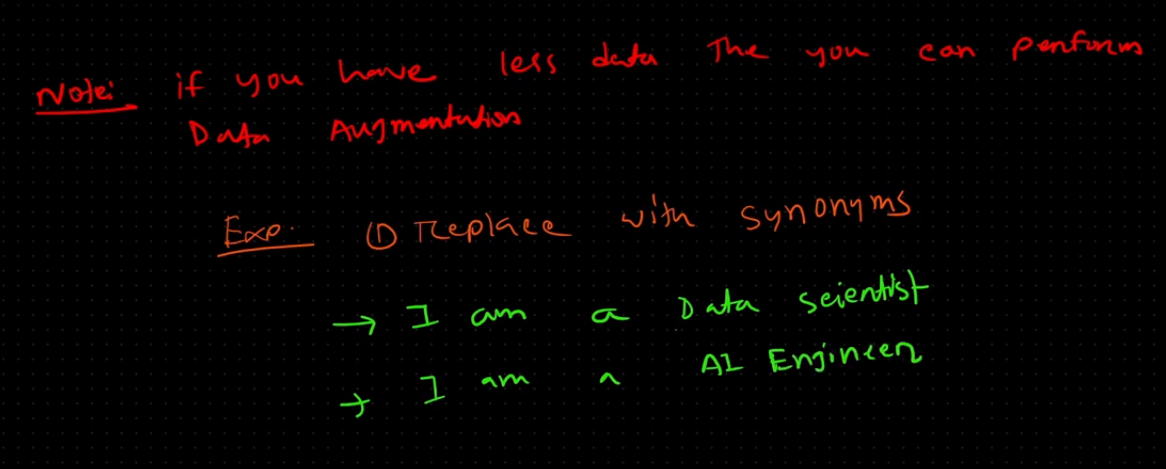 Note: if you have less data The you can perform
Data Augmentation
Exp. ① Replace with synonyms
→ I am a Data scientist
→ I am a AI Engineer